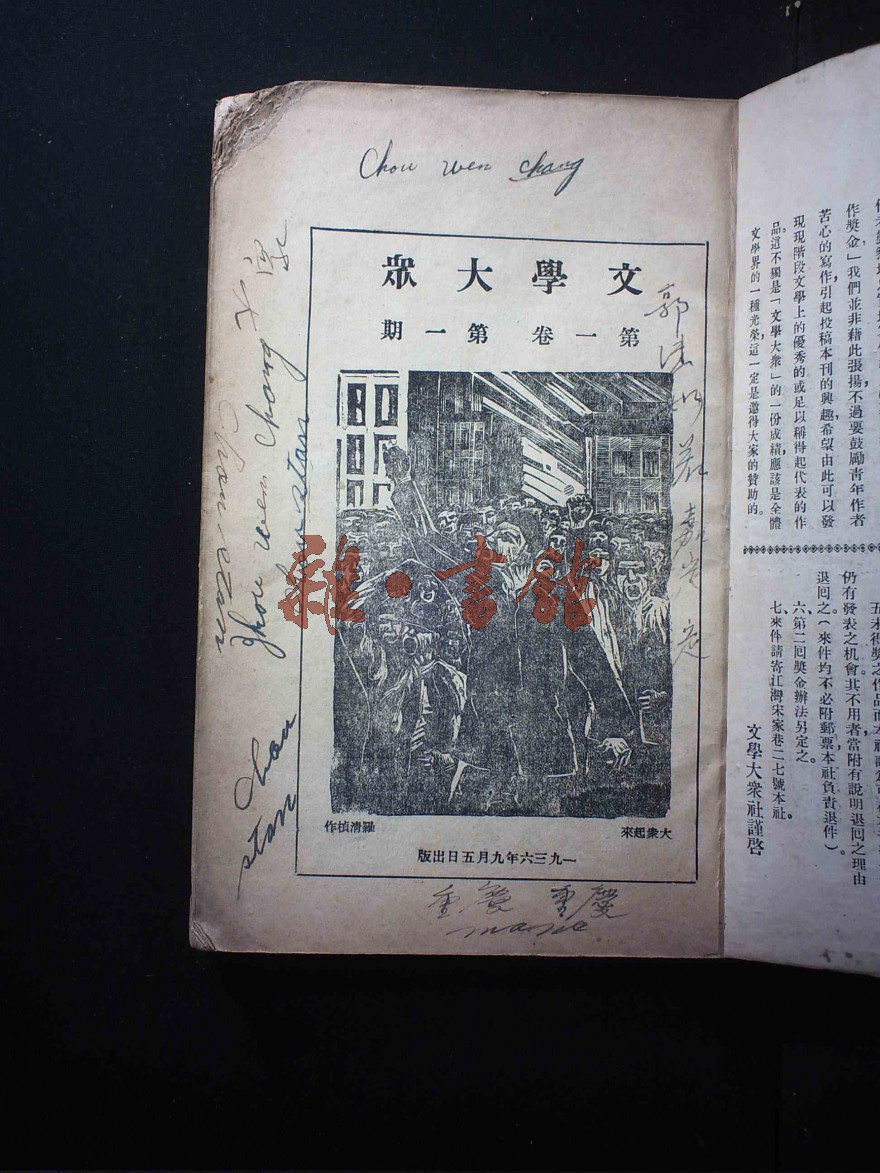 Chou wen chang
文學大眾
第一卷 第一期
大衆起來
羅清楨作
一九三六年九月五日出版
重慶 重慶
name
Chou wen chang
Chou stan
Chou
stan
雜·書館
郭沫
嘉
作獎金」我們並非藉此張揚不過要鼓勵青年作者
苦心的寫作,引起投稿本刊的興趣希望由此可以發
現現階段文學上的優秀的或足以稱得起代表的作
品。這不獨是「文學大衆」的一份成績應該是全體
文學界的一種光榮這一定是邀得大家的贊助的。
五未得獎之作品而本社認爲可
仍有發表之机會其不用者當附有說明退回之理由
退回之(來件均不必附郵票本社負責退件)。
六、第二回獎金辦法另定之。
七來件請寄江灣宋家巷二七號本社。
文學大衆社謹啓